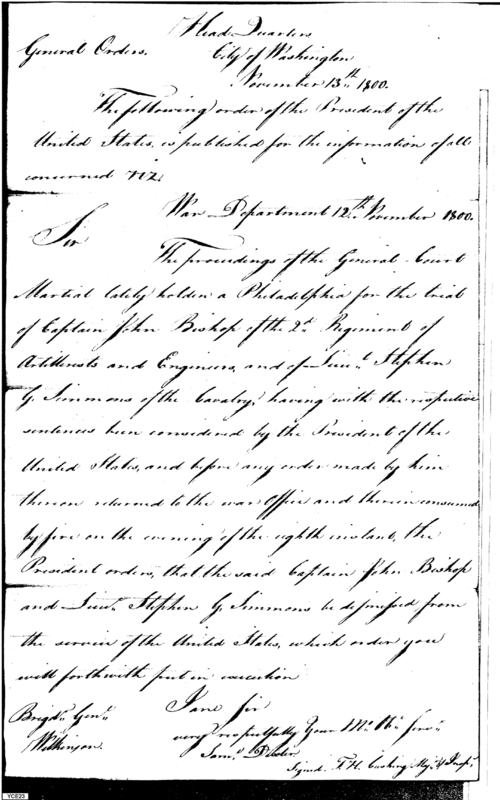 Head Quarters
General Orders. City of Washington
November 13th 1800.
The following order of the President of the
United States, is published for the information of all
concerned viz.
War Department 12th November 1800.
Sir
The proceedings of the General Court
Martial lately holden a Philadelphia for the trial
of Captain John Bishop of the 2d Regiment of
Artillerists and Engineers, and of Lieut Stephen
G. Simmons of the Cavalry, having with the respective
sentences been considered by the President of the
United States, and before any order made by him
thereon returned to the war Office and therein consumed
by fire on the evening of the eighth instant, the
President orders, that the said Captain John Bishop
and Lieut. Stephen G. Simmons be dismissed from
the service of the United States, which order you
will forthwith put in execution
I am Sir
Brigdr Genl very respectfully Your Mo. Ob. Servt
Wilkinson. Saml Dexter
Signed. T. H. Cushing Maj. & Inspr
YC823